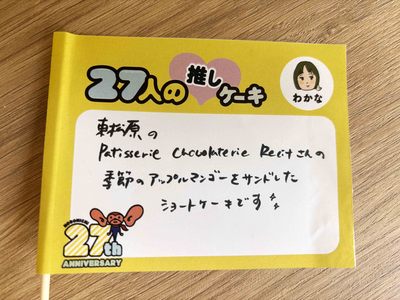 27人の推しケーキ
わかな
東松原の
Patisserie Chocolaterie Recitさんの
季節のアップルマンゴーをサンドした
ショートケーキです
HOBONICHI
27th
ANNIVERSARY